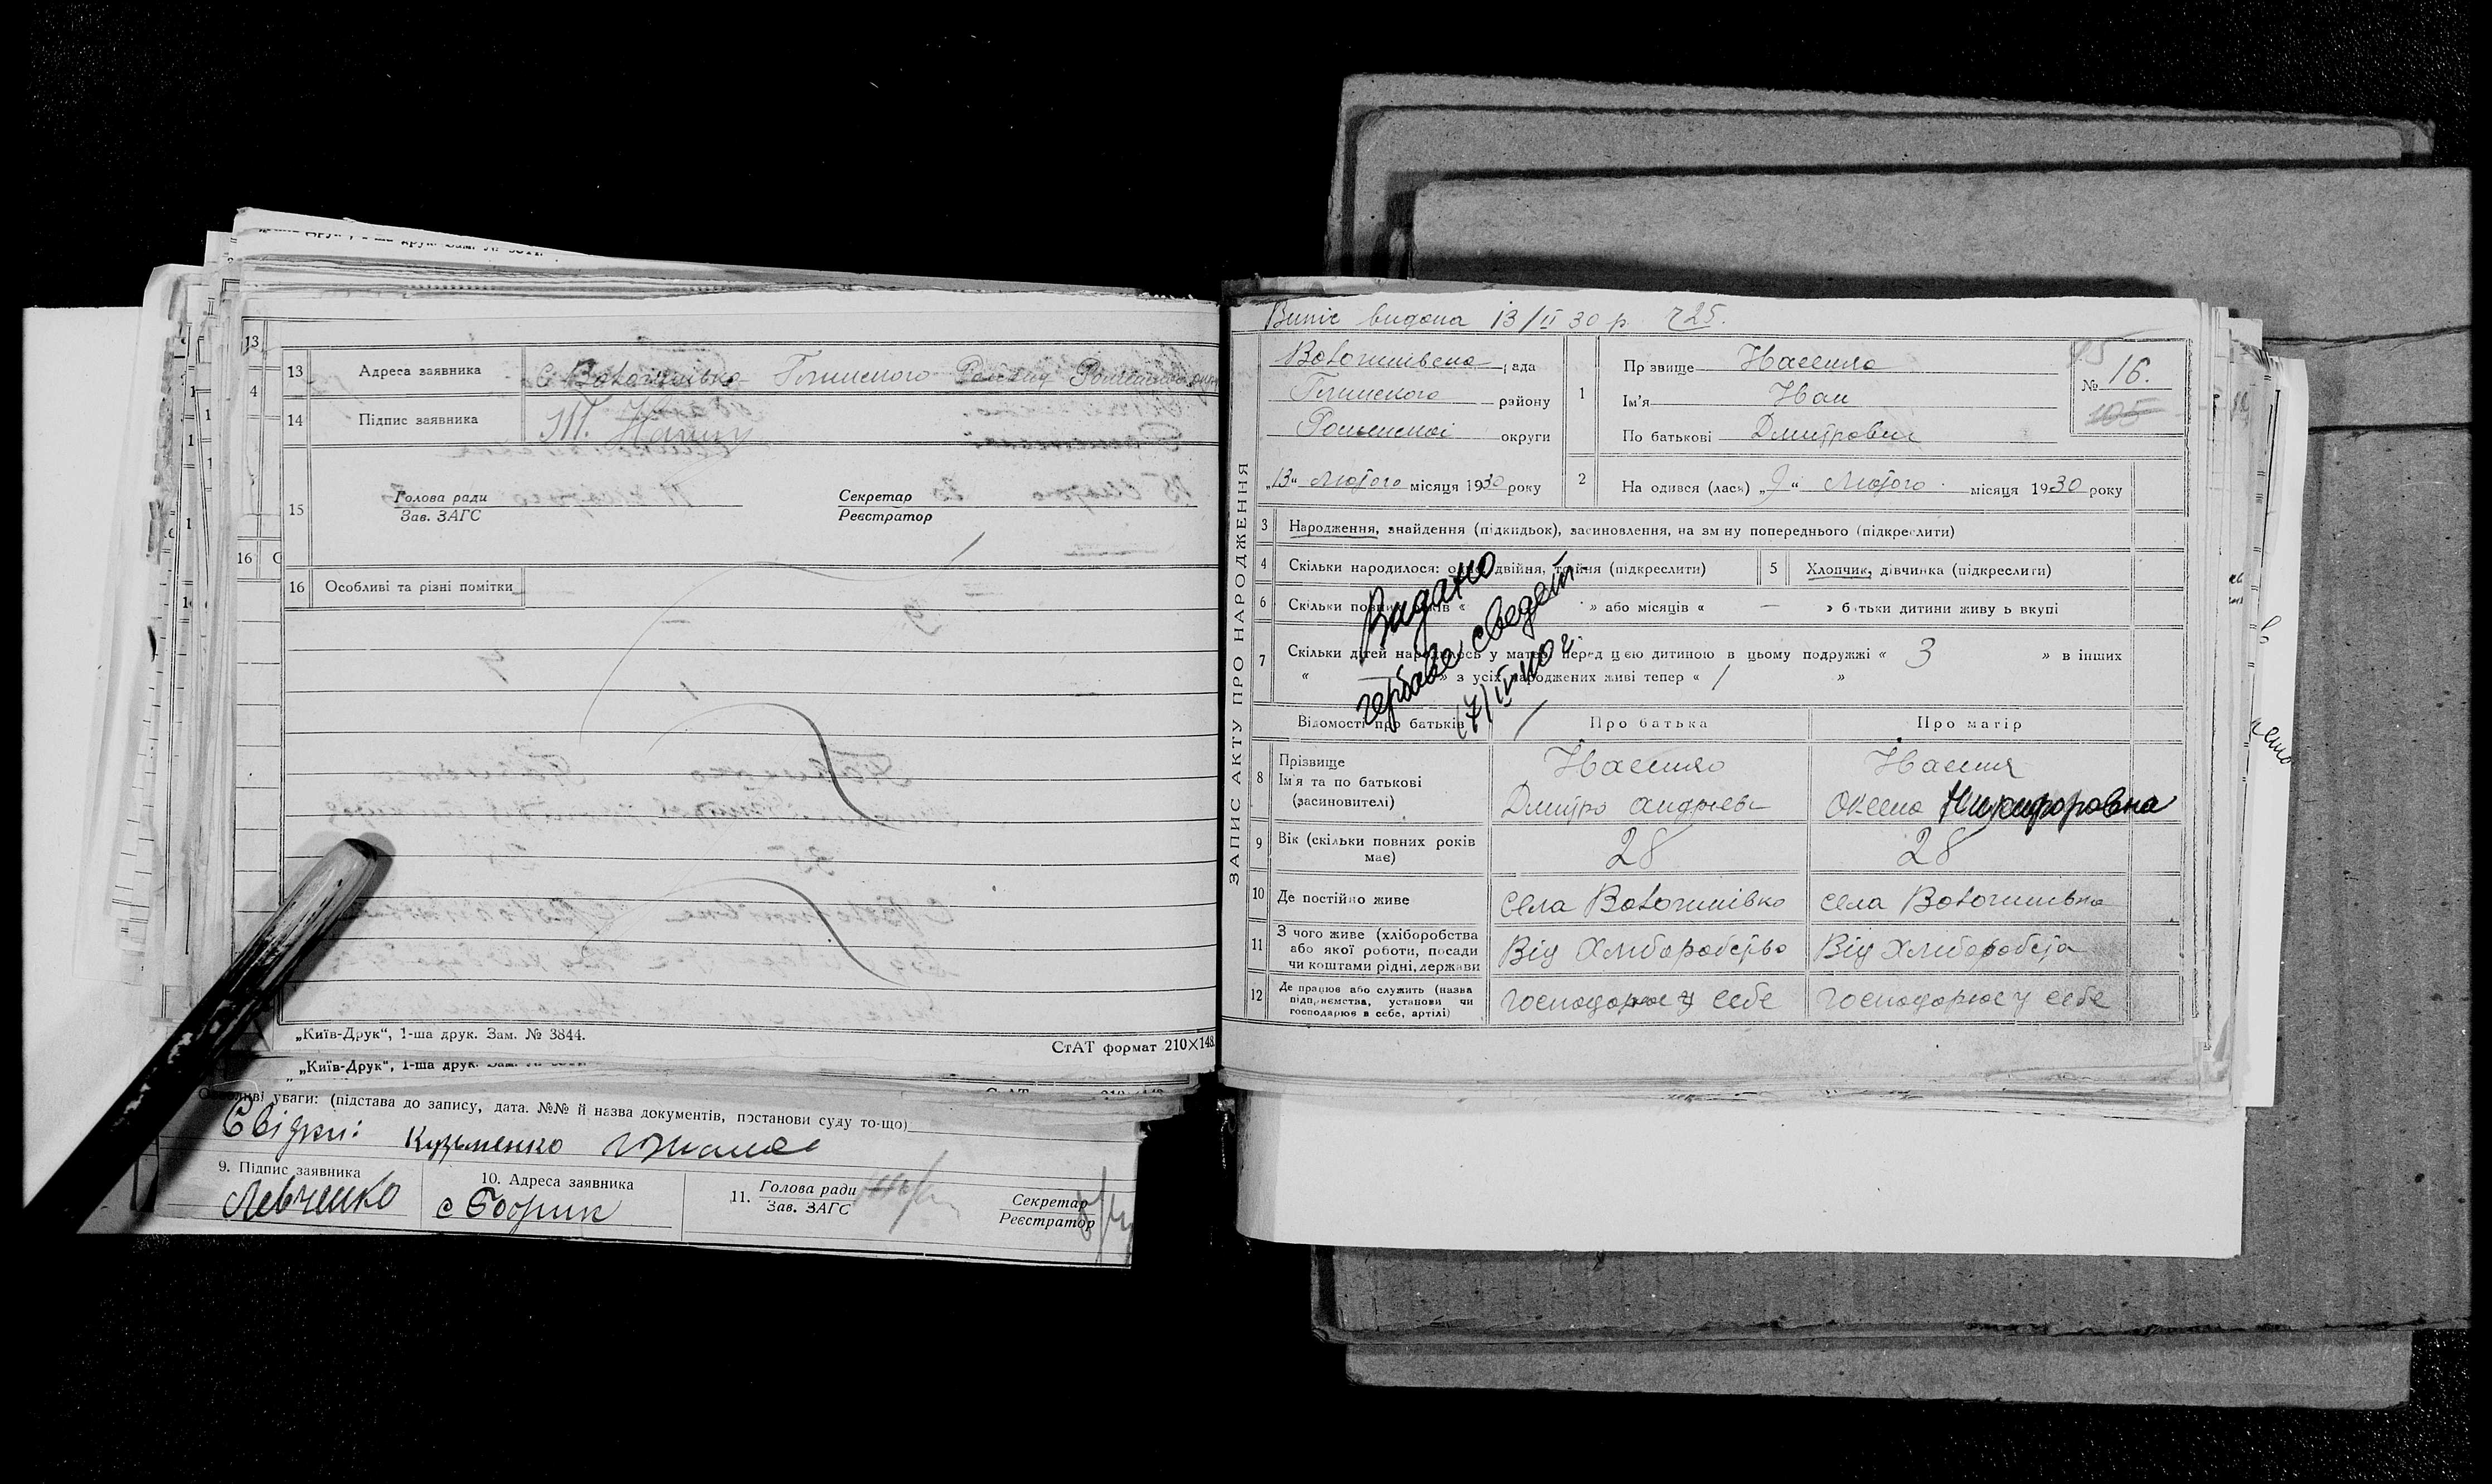 13 Адреса заявника с Волошнівка Глинского Району Роменської окр
14 Підпис заявника
15 Голова ради Секретар
Зав. ЗАГС Реєстратор
16 Особливі та різні помітки
„Київ-Друк“, 1-ша друк. Зам. № 3844.
СтАТ формат 210×148
„Київ-Друк“, 1-ша друк.
уваги: (підстава до запису, дата. №№ й назва документів, постанови суду то-що)
Свідки: Кузьменко
9. Підпис заявника 10. Адреса заявника 11. Голова ради Секретар
Зав. ЗАГС Реєстратор
Левченко
Випіс видана 13/II 30 р. 725.
ЗАПИС АКТУ ПРО НАРОДЖЕННЯ
Волошнівска рада
Глинского району
Роменської округи
„13“ Лютого місяця 1930 року
1 Прізвище
Ім'я Иван
По батькові Дмитрович
№ 16.
105
2 На одився (лася) „9“ Лютого місяця 1930 року
3 Народження, знайдення (підкидьок), засиновлення, на зміну попереднього (підкреслити)
4 Скільки народилося: одне, двійня, трійня (підкреслити) 5 Хлопчик, дівчинка (підкреслити)
6 Скільки повних років « » або місяців « — » батьки дитини живуть вкупі
7 Скільки дітей народилось у матері перед цією дитиною в цьому подружжі « 3 » в інших
« » з усіх народжених живі тепер « 1 »
Видано
гербове сведет
Відомості про батьків Про батька Про матір
8 Прізвище
Ім'я та по батькові
(засиновителі)
Дмитро Андрієв Оксена Никифоровна
9 Вік (скільки повних років має) 28 28
10 Де постійно живе села Волошнівко села Волошнівка
11 З чого живе (хліборобства
або якої роботи, посади
чи коштами рідні, держави
Від Хліборобство Від Хліборобста
12 Де працює або служить (назва
підприємства, установи чи
господарює в себе, артілі)
господорює у себе господорює у себе